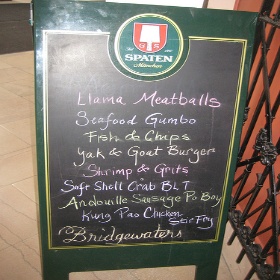 SPATEN
München
Llama Meatballs
Seafood Gumbo
Fish & Chips
Yak & Goat Burgers
Shrimp & Grits
Soft Shell Crab BLT
Andouille Sausage Po Boy
Kung Pao Chicken
Stir Fry
Bridgewaters